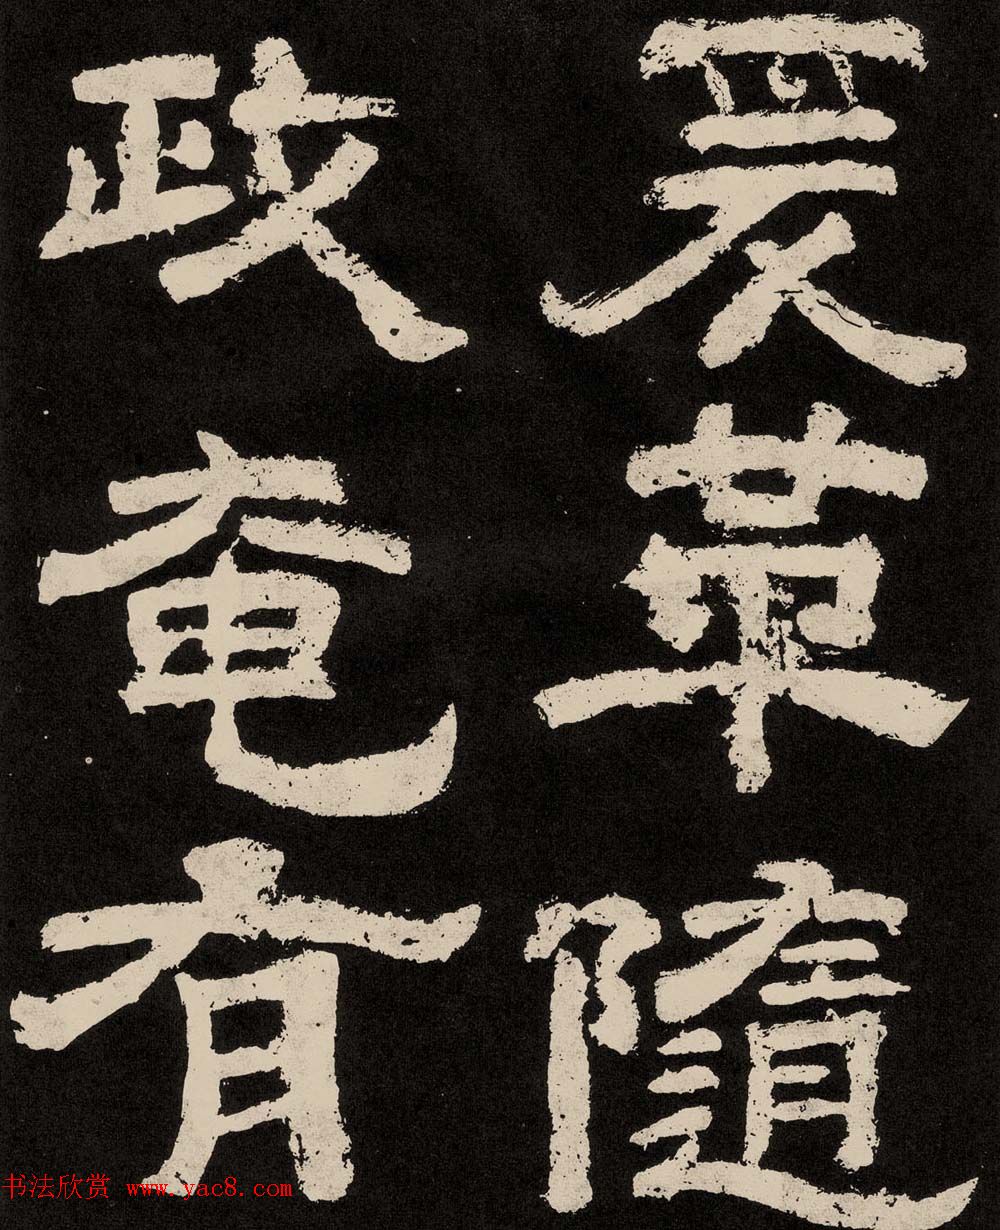 爰革隨
政奄有
书法欣赏 www.yac8.com